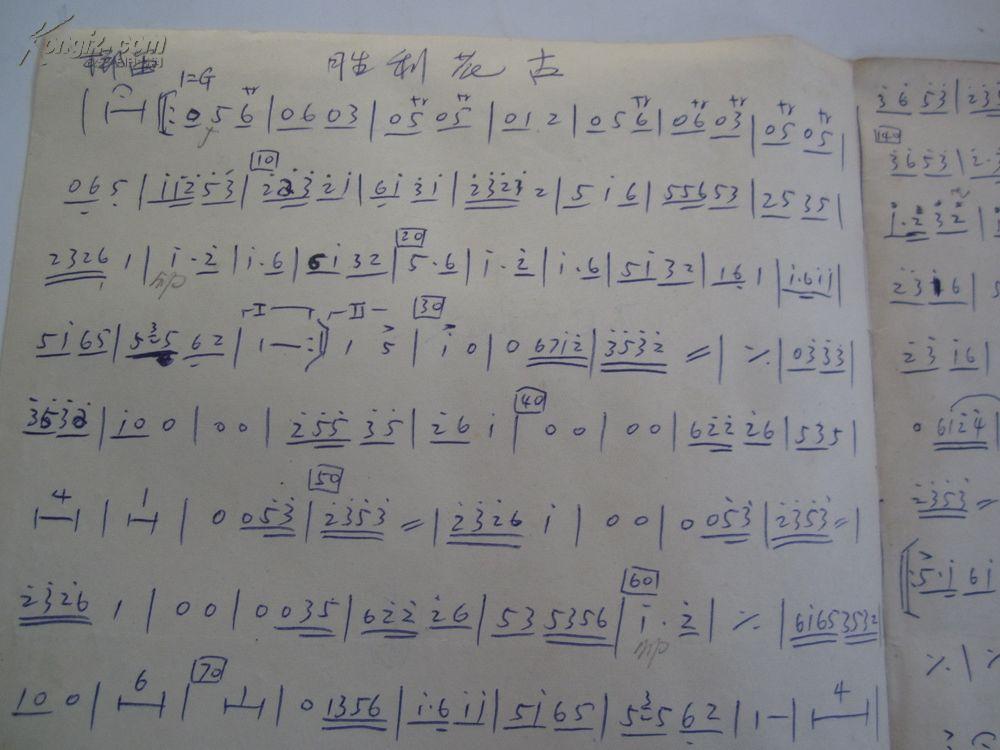 Kongfz.com
1=G
| ⊢⊣ ‖: 0 5 6 | 0 6 0 3 | 0 5 0 5 | 0 1 2 | 0 5 6 | 0 6 0 3 | 0 5 0 5 |
0 6 5 | i i 2 5 3 | [10] 2 2 3 2 i | 6 i 3 i | 2 3 2 3 2 | 5 i 6 | 5 5 6 5 3 | 2 5 3 5 |
2 3 2 6 1 | i · 2 | i · 6 | 5 i 3 2 | [20] 5 · 6 | i · 2 | i · 6 | 5 i 3 2 | 1 6 1 | i · 6 i i |
mp
5 i 6 5 | 5 3 5 6 2 | I 1 — :‖ II 1 5 | [30] i 0 | 0 6 7 i 2 | 3 5 3 2 = | ٪ | 0 3 3 3 |
3 5 3 2 | i 0 0 | 0 0 | 2 5 5 3 5 | 2 6 i | [40] 0 0 | 0 0 | 6 2 2 2 6 | 5 3 5 |
4 | 1 | 0 0 5 3 | [50] 2 3 5 3 = | 2 3 2 6 i | 0 0 | 0 0 5 3 | 2 3 5 3 = |
2 3 2 6 1 | 0 0 | 0 0 3 5 | 6 2 2 2 6 | 5 3 5 3 5 6 | [60] i · 2 | ٪ | 6 i 6 5 3 5 3 2 |
mp
1 0 0 | 6 | [70] 1 | 0 1 3 5 6 | i · 6 i i | 5 i 6 5 | 5 3 5 6 2 | 1 — | 4 |
3 6 5 3 | 2 3
[140]
3 6 5 3 | 2 ·
i · 2 3 2 |
2 3 i 6 | 5
2 3 i 6 |
0 6 i 2 4
2 3 5 3 =
5 · i 6 i
٪ | ٪